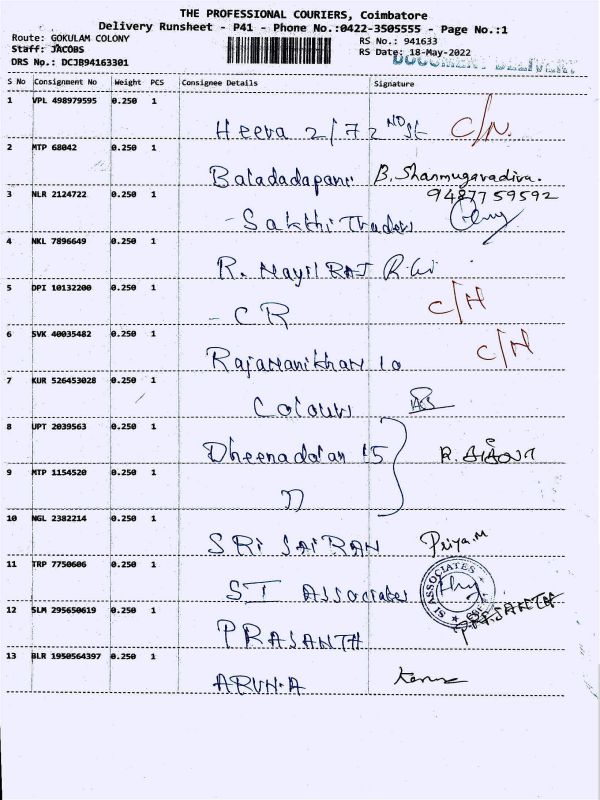 THE PROFESSIONAL COURIERS, Coimbatore
Delivery Runsheet - P41 - Phone No.:0422-3505555 - Page No.:1
Route: GOKULAM COLONY
RS No.: 941633
Staff: JACOBS
RS Date: 18-May-2022
DRS No.: DCJB94163301
DOCUMENT DELIVERY
S No Consignment No Weight PCS Consignee Details Signature
1 VPL 498979595 0.250 1
Heera 2/72 ND St C/N.
2 MTP 68042 0.250 1
Baladadapani B. Shanmugavadiva.
3 NLR 2124722 0.250 1 9487759592
- Sakthi Traders
4 NKL 7896649 0.250 1
R. Mayil RAJ
5 DPI 10132200 0.250 1
- CR C/N
6 SVK 40035482 0.250 1
RajaManikhan 10 C/N
7 KUR 526453028 0.250 1
Colours
8 UPT 2039563 0.250 1
Dheenadalan 15
9 MTP 1154520 0.250 1
10 NGL 2382214 0.250 1
SRi SAiRAN Priya.M
11 TRP 7750606 0.250 1
ST Associates SI ASSOCIATES
12 SLM 295650619 0.250 1
PRASANTH
13 BLR 1950564397 0.250 1
ARUN.A